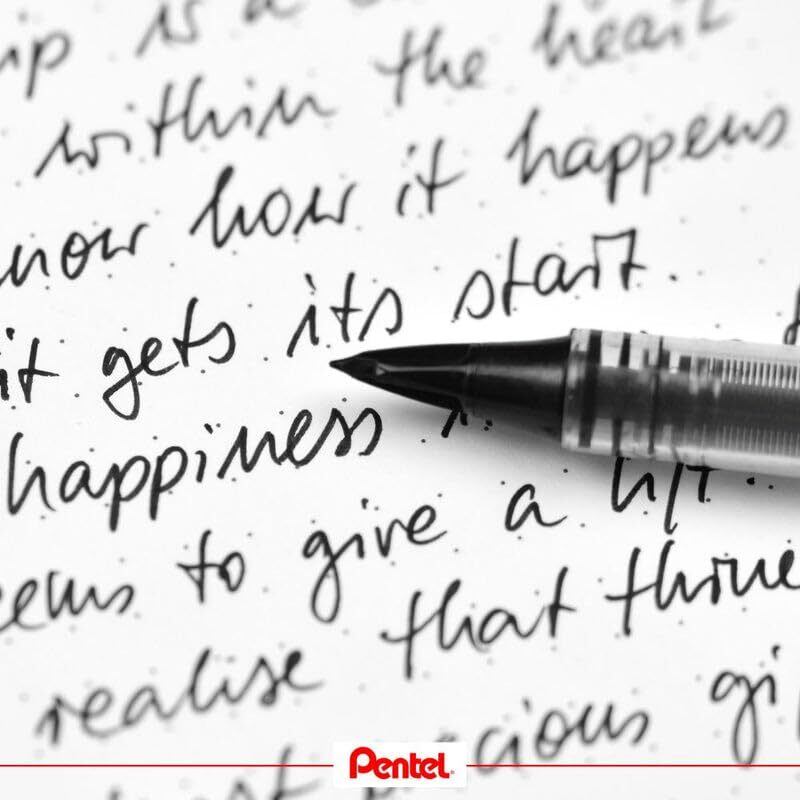 ip is a
within the heart
now how it happens
it gets its start.
happiness
eems to give a lift
realise that thine
cious gi
Pentel